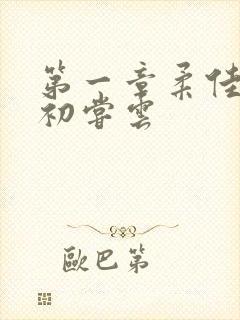 第一章柔佳
初嘗雲
歐巴第